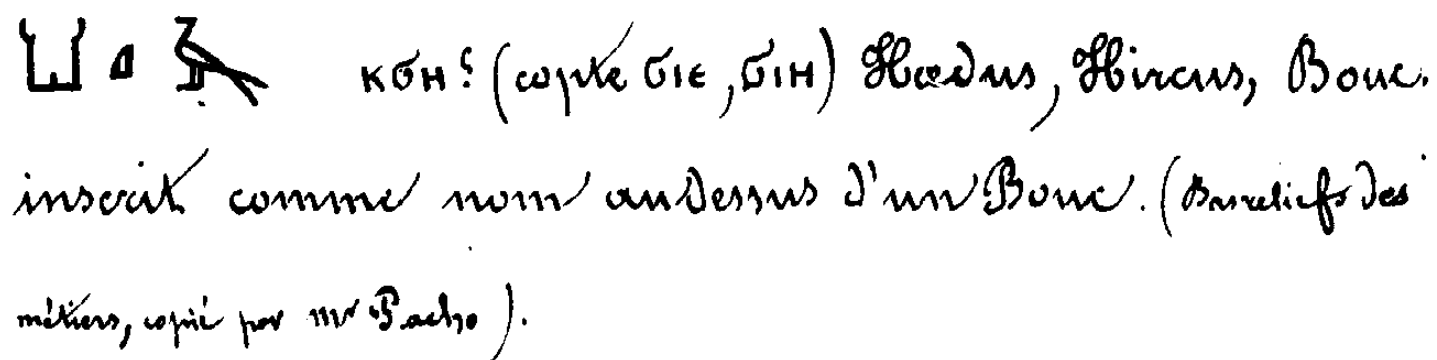 ⲕϭⲏ? (copte ϭⲓⲉ, ϭⲓⲏ) Hœdus, Hircus, Bouc.
inscrit comme nom au dessus d'un Bouc. (Basreliefs des
métiers, copié par Mr Pacho).